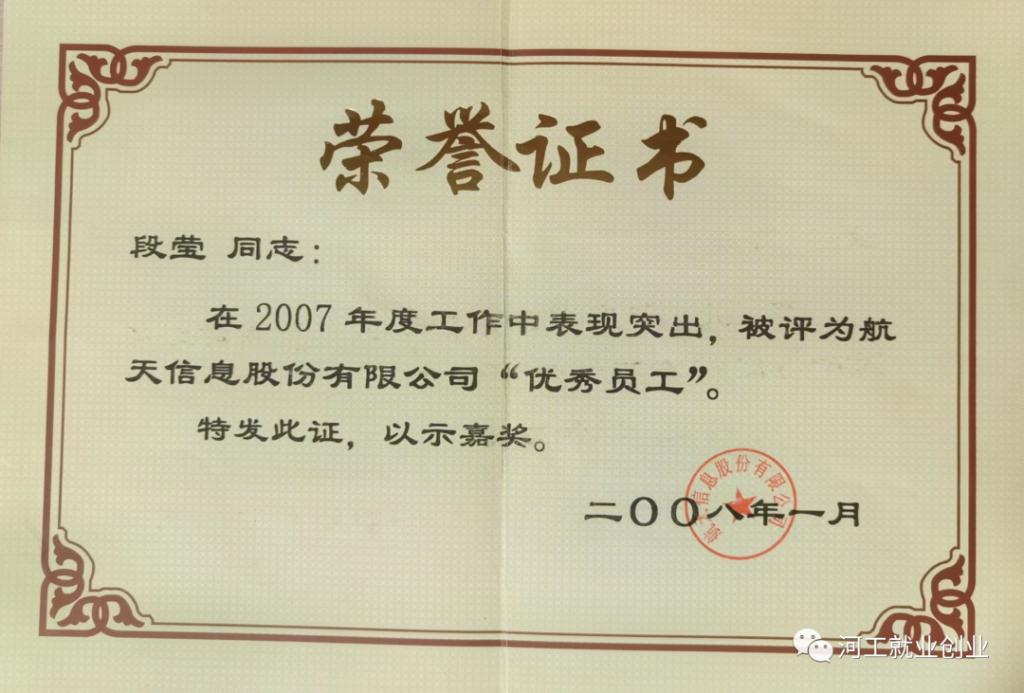 荣誉证书
段莹 同志：
在 2007 年度工作中表现突出，被评为航
天信息股份有限公司“优秀员工”。
特发此证，以示嘉奖。
二〇〇八年一月
航天信息股份有限公司
河工就业创业